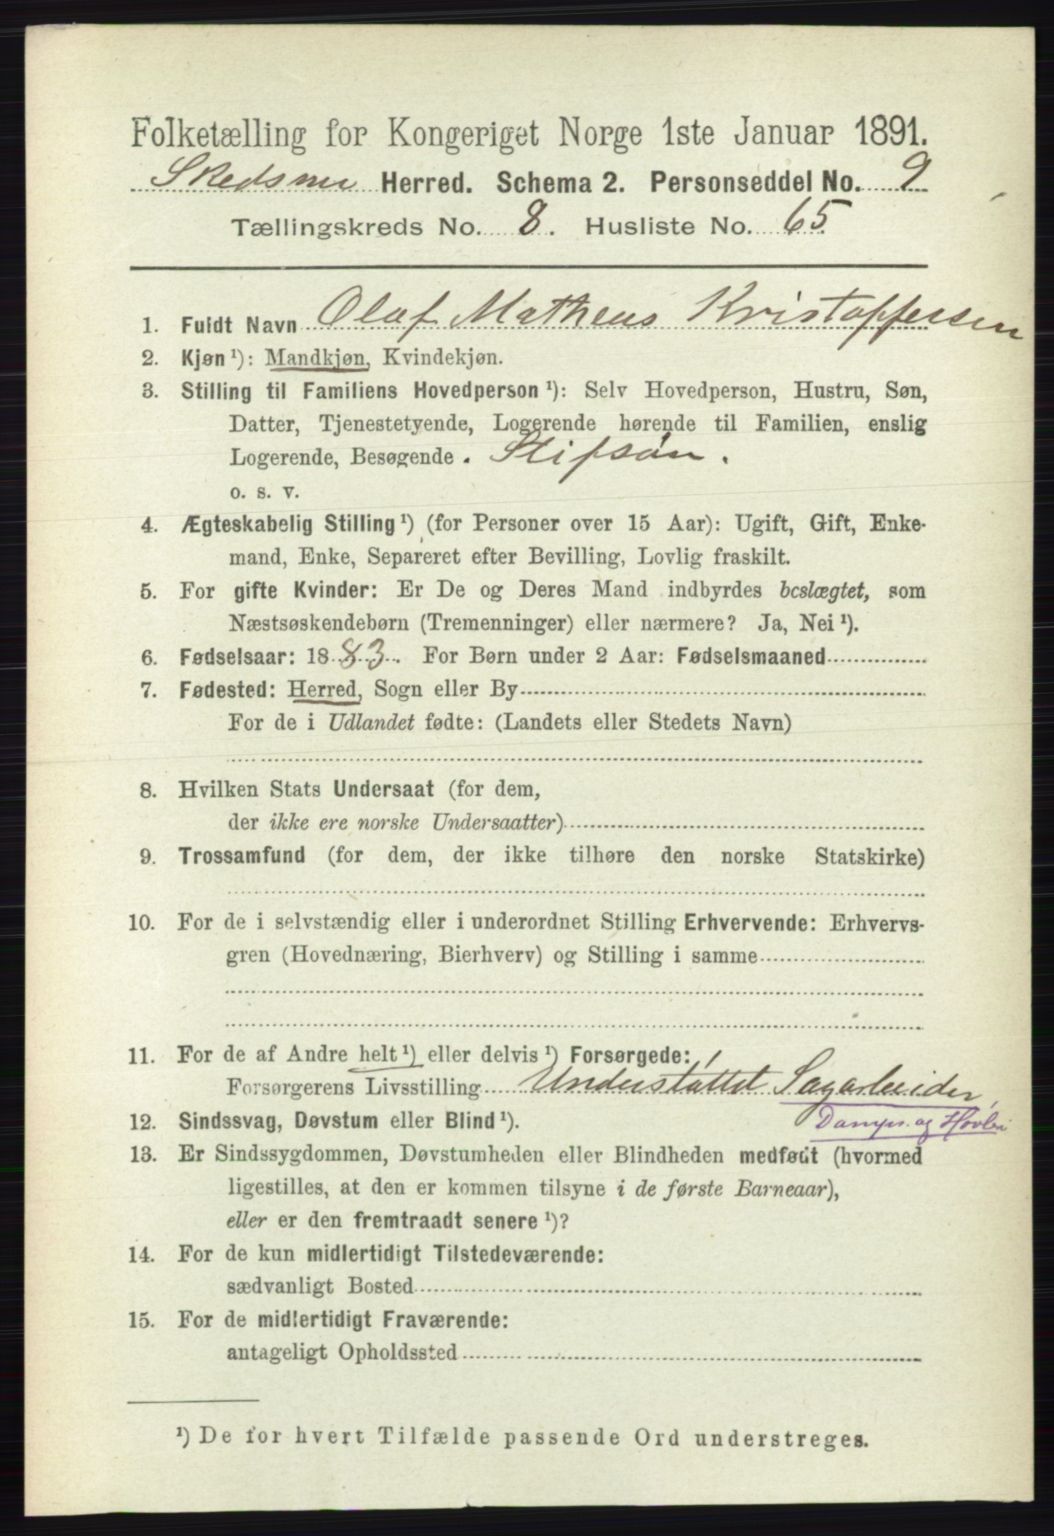 Folketælling for Kongeriget Norge 1ste Januar 1891.
Skedsmo Herred. Schema 2. Personseddel No. 9
Tællingskreds No. 8. Husliste No. 65.
1. Fuldt Navn Olaf Matheus Kristoffersen
2. Kjøn ¹): Mandkjøn, Kvindekjøn.
3. Stilling til Familiens Hovedperson ¹): Selv Hovedperson, Hustru, Søn,
Datter, Tjenestetyende, Logerende hørende til Familien, enslig
Logerende, Besøgende . Stifsøn .
o. s. v.
4. Ægteskabelig Stilling ¹) (for Personer over 15 Aar): Ugift, Gift, Enke-
mand, Enke, Separeret efter Bevilling, Lovlig fraskilt.
5. For gifte Kvinder: Er De og Deres Mand indbyrdes beslægtet, som
Næstsøskendebørn (Tremenninger) eller nærmere? Ja, Nei ¹).
6. Fødselsaar: 1883. For Børn under 2 Aar: Fødselsmaaned
7. Fødested: Herred, Sogn eller By
For de i Udlandet fødte: (Landets eller Stedets Navn)
8. Hvilken Stats Undersaat (for dem,
der ikke ere norske Undersaatter)
9. Trossamfund (for dem, der ikke tilhøre den norske Statskirke)
10. For de i selvstændig eller i underordnet Stilling Erhvervende: Erhvervs-
gren (Hovednæring, Bierhverv) og Stilling i samme
11. For de af Andre helt ¹) eller delvis ¹) Forsørgede:
Forsørgerens Livsstilling Understøttet Sagarbeider,
12. Sindssvag, Døvstum eller Blind ¹). Damps. og Høvleri
13. Er Sindssygdommen, Døvstumheden eller Blindheden medfødt (hvormed
ligestilles, at den er kommen tilsyne i de første Barneaar),
eller er den fremtraadt senere ¹)?
14. For de kun midlertidigt Tilstedeværende:
sædvanligt Bosted
15. For de midlertidigt Fraværende:
antageligt Opholdssted
¹) De for hvert Tilfælde passende Ord understreges.